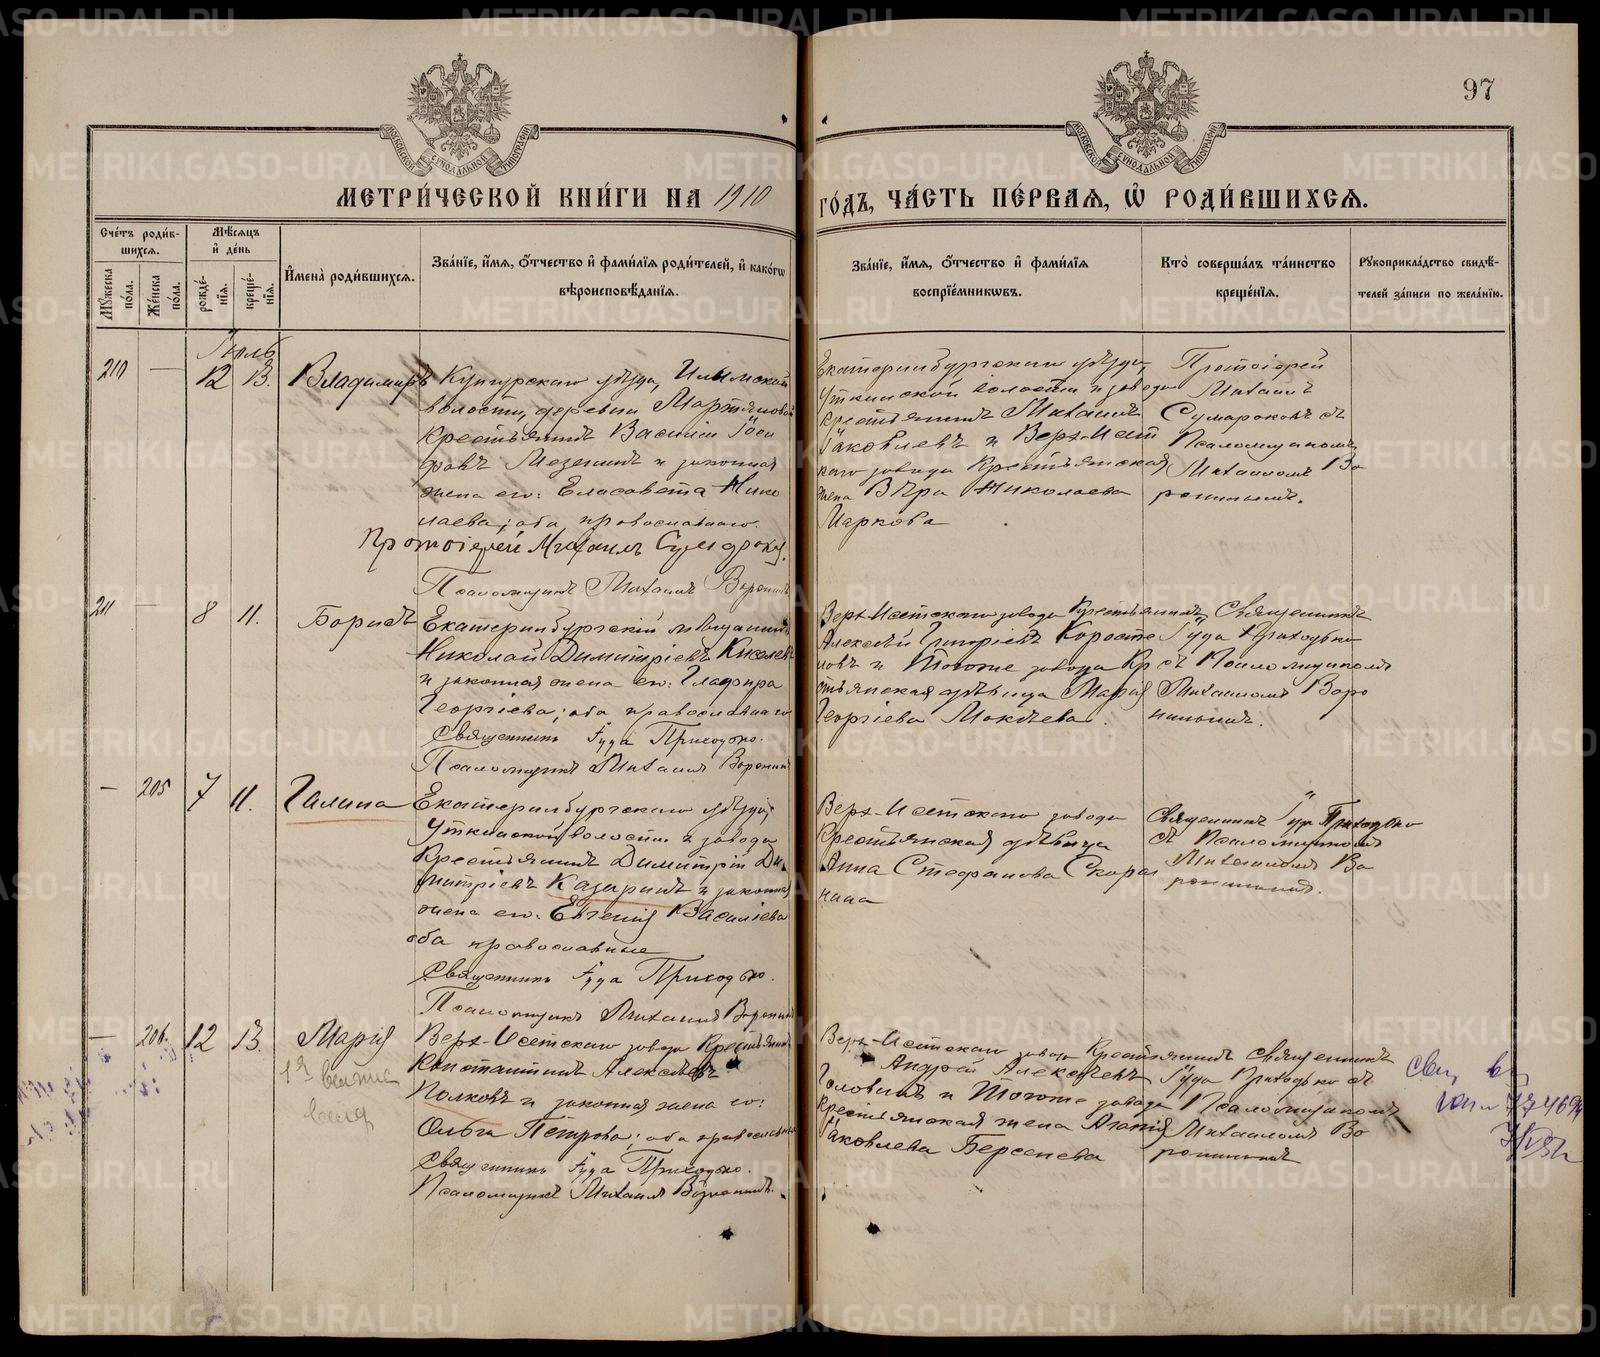 97
МЕТРИ́ЧЕСКОЙ КНИ́ГИ НА 1910
ГО́ДЪ, ЧА́СТЬ ПЕ́РВАѦ, Ѡ҆ РОДИ́ВШИХСѦ.
Сче́тъ роди́в-
шихсѧ.
Мѣ́сѧцъ
и҆ де́нь
Мꙋ́жеска
по́ла.
Же́нска
по́ла.
рожде́-
нїѧ.
креще́-
нїѧ.
И҆мена̀ роди́вшихсѧ.
Зва́нїе, и҆́мѧ, ѻ҆́тчество и҆ фами́лїѧ роди́телей, и҆ како́гѡ
вѣроисповѣ́данїѧ.
Зва́нїе, и҆́мѧ, ѻ҆́тчество и҆ фами́лїѧ
воспрїе́мникѡвъ.
Кто̀ соверша́лъ та́инство
креще́нїѧ.
Рꙋкоприкла́дство свидѣ́-
телей за́писи по жела́нїю.
Іюль
210 — 12 13. Владимиръ
Кунгурскаго уѣзда, Илимской
волости, деревни Мартяновой
крестьянинъ Василій Іоси
фовъ Мезенинъ и законная
жена его: Елисавета Нико
лаева; оба православнаго.
Протоіерей Михаилъ Сумароковъ.
Псаломщикъ Михаилъ Воронинъ
Екатеринбургскаго уѣзда,
Уткинской волости и завода
крестьянинъ Михаилъ
Іаковлевъ и Верх-Исет
скаго завода крестьянская
жена Вѣра Николаева
Маркова
Протоіерей
Михаилъ
Сумароковъ съ
Псаломщикомъ
Михаиломъ Во
ронинымъ.
211 — 8 11. Борисъ
Екатеринбургскій мѣщанинъ
Николай Димитріевъ Киселевъ
и законная жена его: Глафира
Георгіева; оба православнаго
Священникъ Іуда Приходько.
Псаломщикъ Михаилъ Воронинъ
Верх-Исетскаго завода крестьянинъ
Алексѣй Григріевъ Коросте
левъ и тогоже завода кр
стьянская дѣвица Марія
Георгіева Мокѣева.
Священникъ
Іуда Приходько
съ Псаломщикомъ
Михаиломъ Воро
нинымъ.
— 205 7 11. Галина
Екатеринбургскаго уѣзда,
Уткинской волости и завода
крестьянинъ Димитрій Ди
митріевъ Казаринъ и законная
жена его: Евгенія Василіева
оба православные
Священникъ Іуда Приходько.
Псаломщикъ Михаилъ Воронинъ
Верх-Исетскаго завода
крестьянская дѣвица
Анна Стефанова Скоры
нина
Священникъ Іуда Приходько
съ Псаломщикомъ
Михаиломъ Во
ронинымъ.
— 206. 12 13. Марія
Верх-Исетскаго завода крестьянинъ
Константинъ Алексѣевъ
Полковъ и законная жена его:
Ольга Петрова; оба православны
Священникъ Іуда Приходько.
Псаломщикъ Михаилъ Воронинъ.
Верх-Исетскаго завода крестьянинъ
Андрей Алексѣевъ
Головинъ и тогоже завода
крестьянская жена Агапія
Іаковлева Берсенева
Священникъ
Іуда Приходько съ
Псаломщикомъ
Михаиломъ Во
ронинымъ